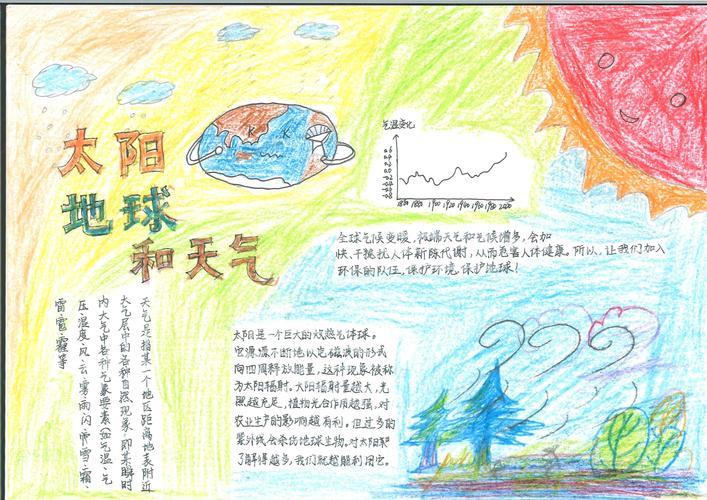 太阳
地球
和天气
气温变化
1860 1880 1900 1920 1940 1960 1980 2000
全球气候变暖,极端天气和气候增多,会加
快、干扰人体新陈代谢,从而危害人体健康。所以,让我们加入
环保的队伍,保护环境,保护地球!
天气是指某一个地区距离地表附近
大气层中的各种自然现象,即某瞬时
内大气中各种气象要素(如气温、气
压、湿度、风、云、雾、雨、闪、雪、霜、
雷、雹、霾等
太阳是一个巨大的炽热气体球。
它源源不断地以电磁波的形式
向四周释放能量,这种现象被称
为太阳辐射。太阳辐射量越大,光
照越充足,植物光合作质越强,对
农业生产的影响越有利。但过多的
紫外线会杀伤地球生物。对太阳
了解得越多,我们就越能利用它。